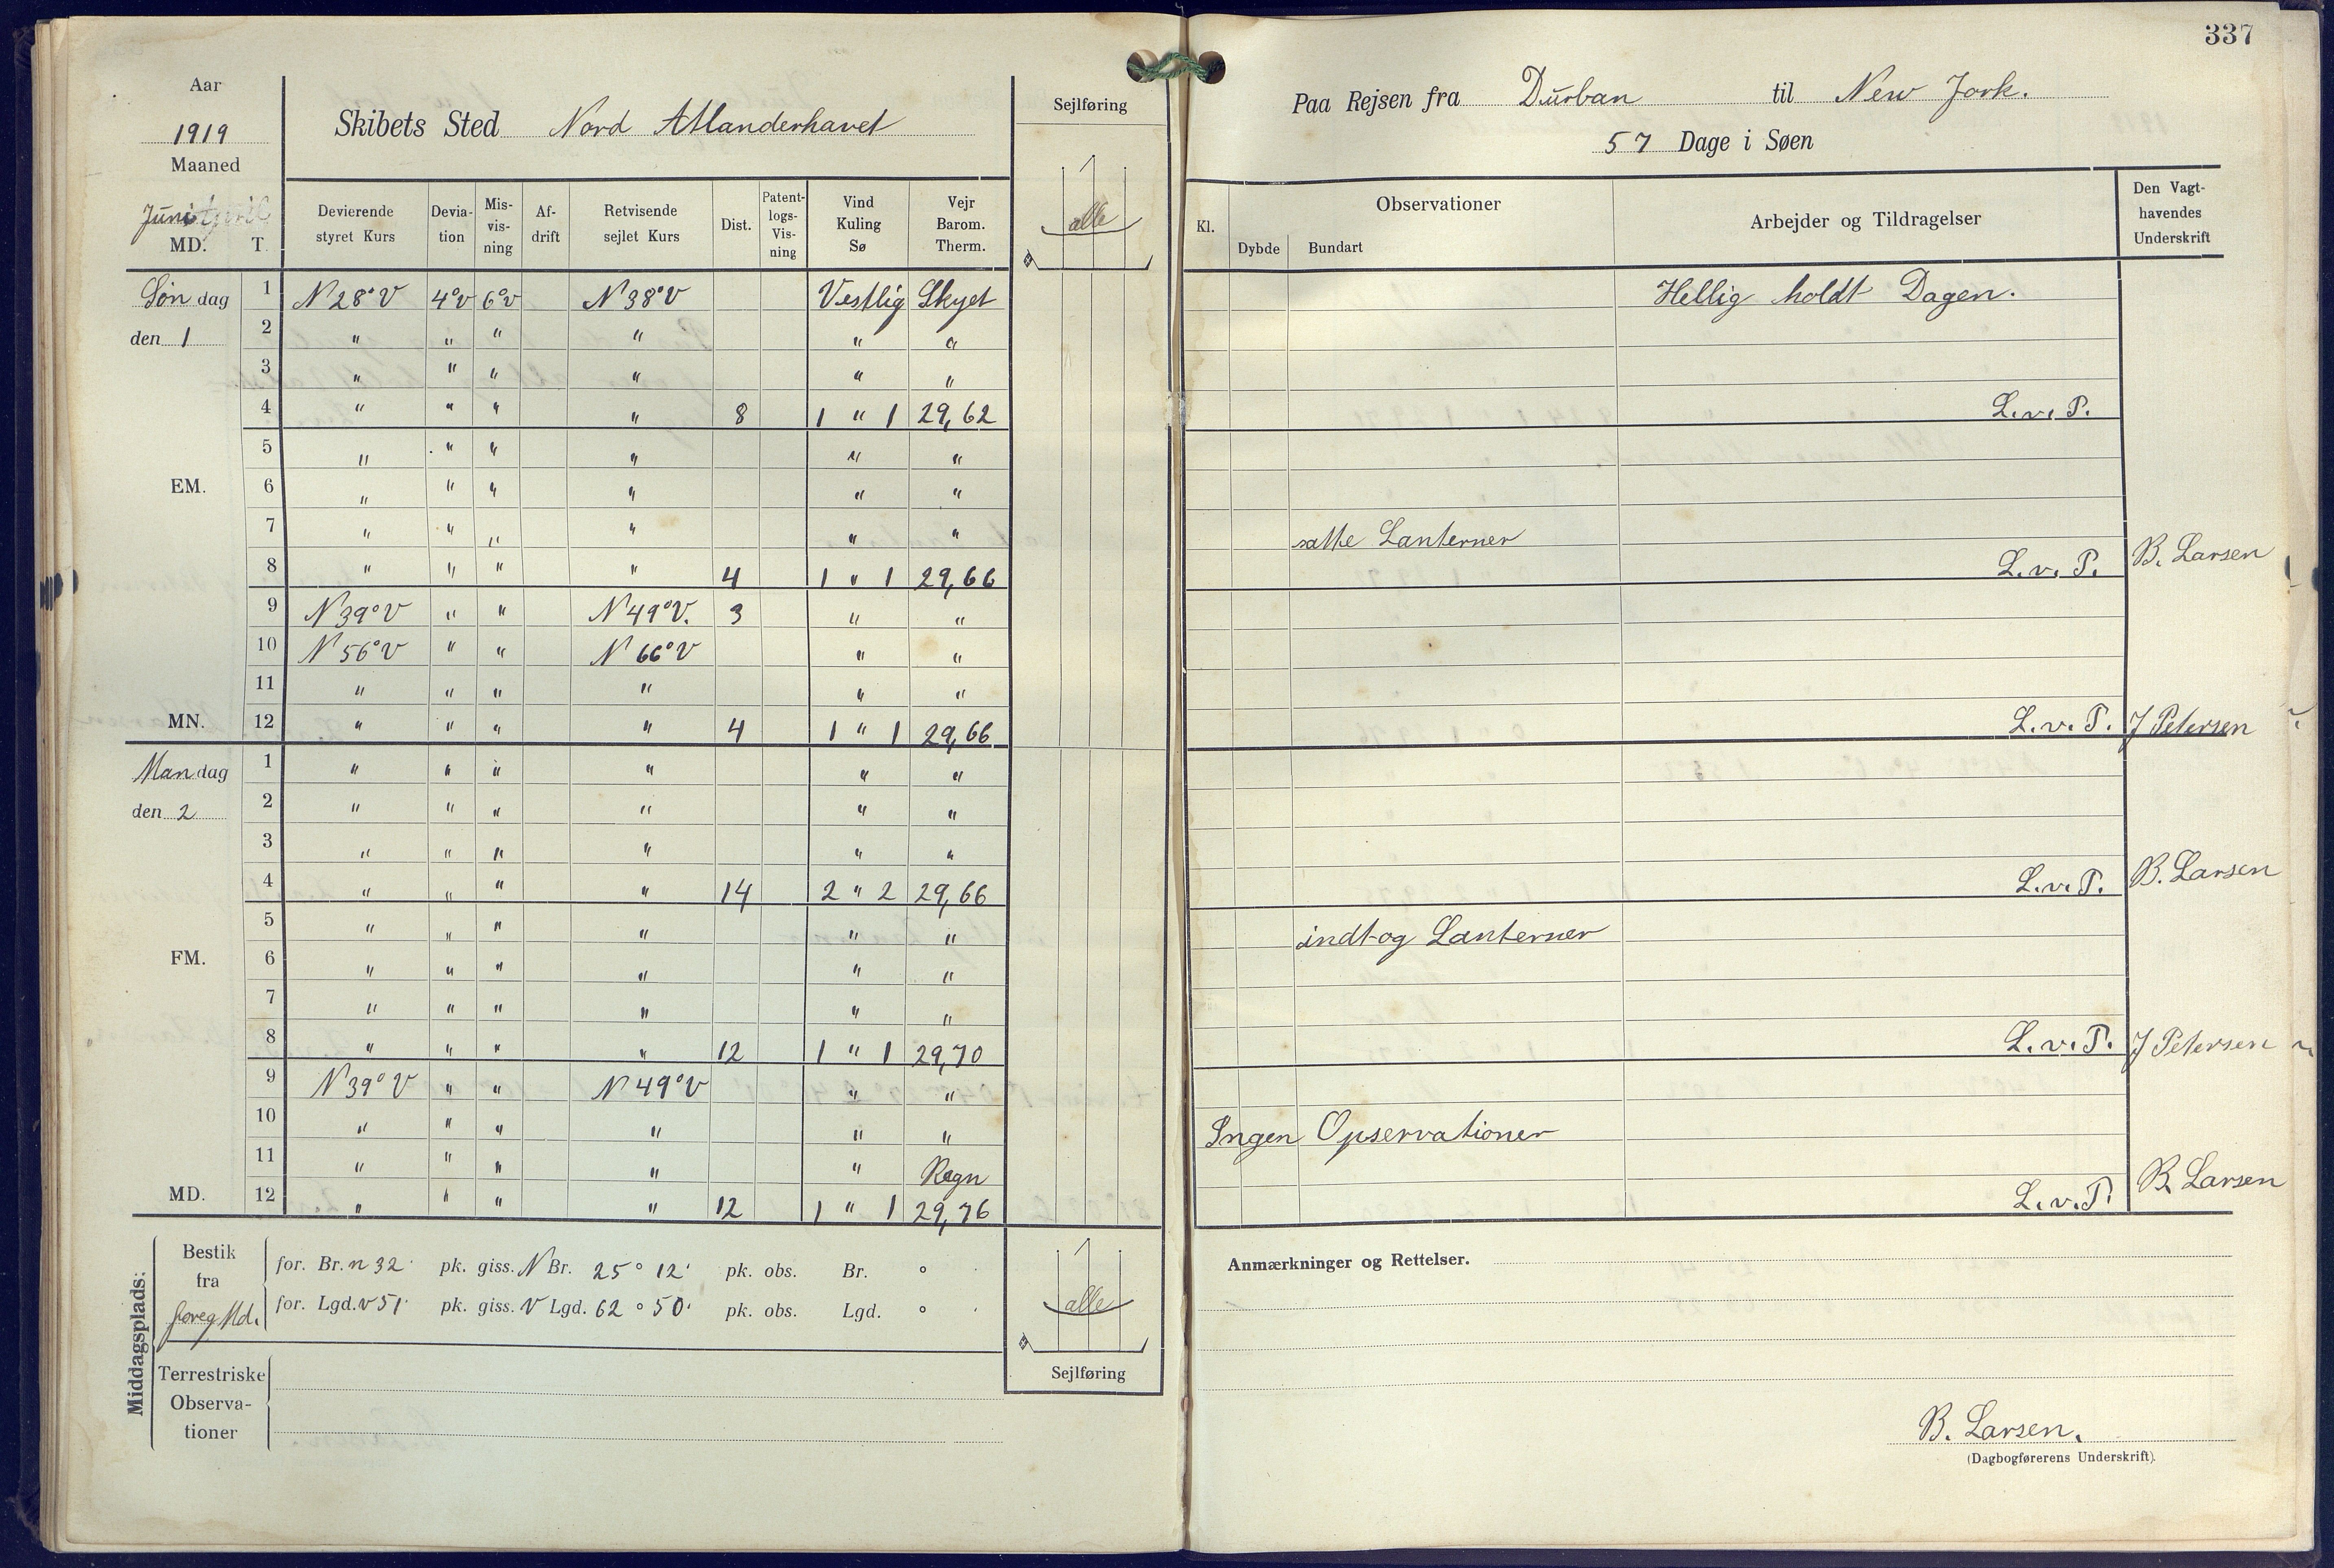 337
Aar
1919
Maaned
Juni
MD. T.
Skibets Sted Nord Atlanderhavet
Sejlføring
alle
Paa Rejsen fra Durban til New Jork.
57 Dage i Søen
Devierende styret Kurs | Deviation | Misvisning | Afdrift | Retvisende sejlet Kurs | Dist. | Patentlogs-Visning | Vind Kuling Sø | Vejr Barom. Therm.
Kl. | Observationer | Dybde | Bundart | Arbejder og Tildragelser | Den Vagthavendes Underskrift
Søndag 1 N 28° V 4°V 6°V N 38° V Vestlig Skyet Hellig holdt Dagen.
den 1 2 " " " " " "
3 " " " " " "
4 " " " " 8 1 " 1 29,62 L.v.P.
5 " " " " " "
EM. 6 " " " " " "
7 " " " " " " satte Lanterner
8 " " " " 4 1 " 1 29,66 L.v.P. B. Larsen
9 N 39° V " " N 49° V. 3 " "
10 N 56° V " " N 66° V " "
11 " " " " " "
MN. 12 " " " " 4 1 " 1 29,66 L.v.P. J Petersen
Mandag 1 " " " " " "
den 2 2 " " " " " "
3 " " " " " "
4 " " " " 14 2 " 2 29,66 L.v.P. B. Larsen
5 " " " " " " indtog Lanterner
FM. 6 " " " " " "
7 " " " " " "
8 " " " " 12 1 " 1 29,70 L.v.P. J Petersen
9 N 39° V " " N 49° V " "
10 " " " " " " Ingen Opservationer
11 " " " " " Regn
MD. 12 " " " " 12 1 " 1 29,76 L.v.P. B. Larsen
Middagsplads:
Bestik fra foreg Md.
for. Br. n 32' pk. giss. N Br. 25° 12' pk. obs. Br. ° '
for. Lgd. v 51' pk. giss. V Lgd. 62° 50' pk. obs. Lgd. ° '
alle
Sejlføring
Terrestriske
Observa-
tioner
Anmærkninger og Rettelser.
B. Larsen.
(Dagbogførerens Underskrift).